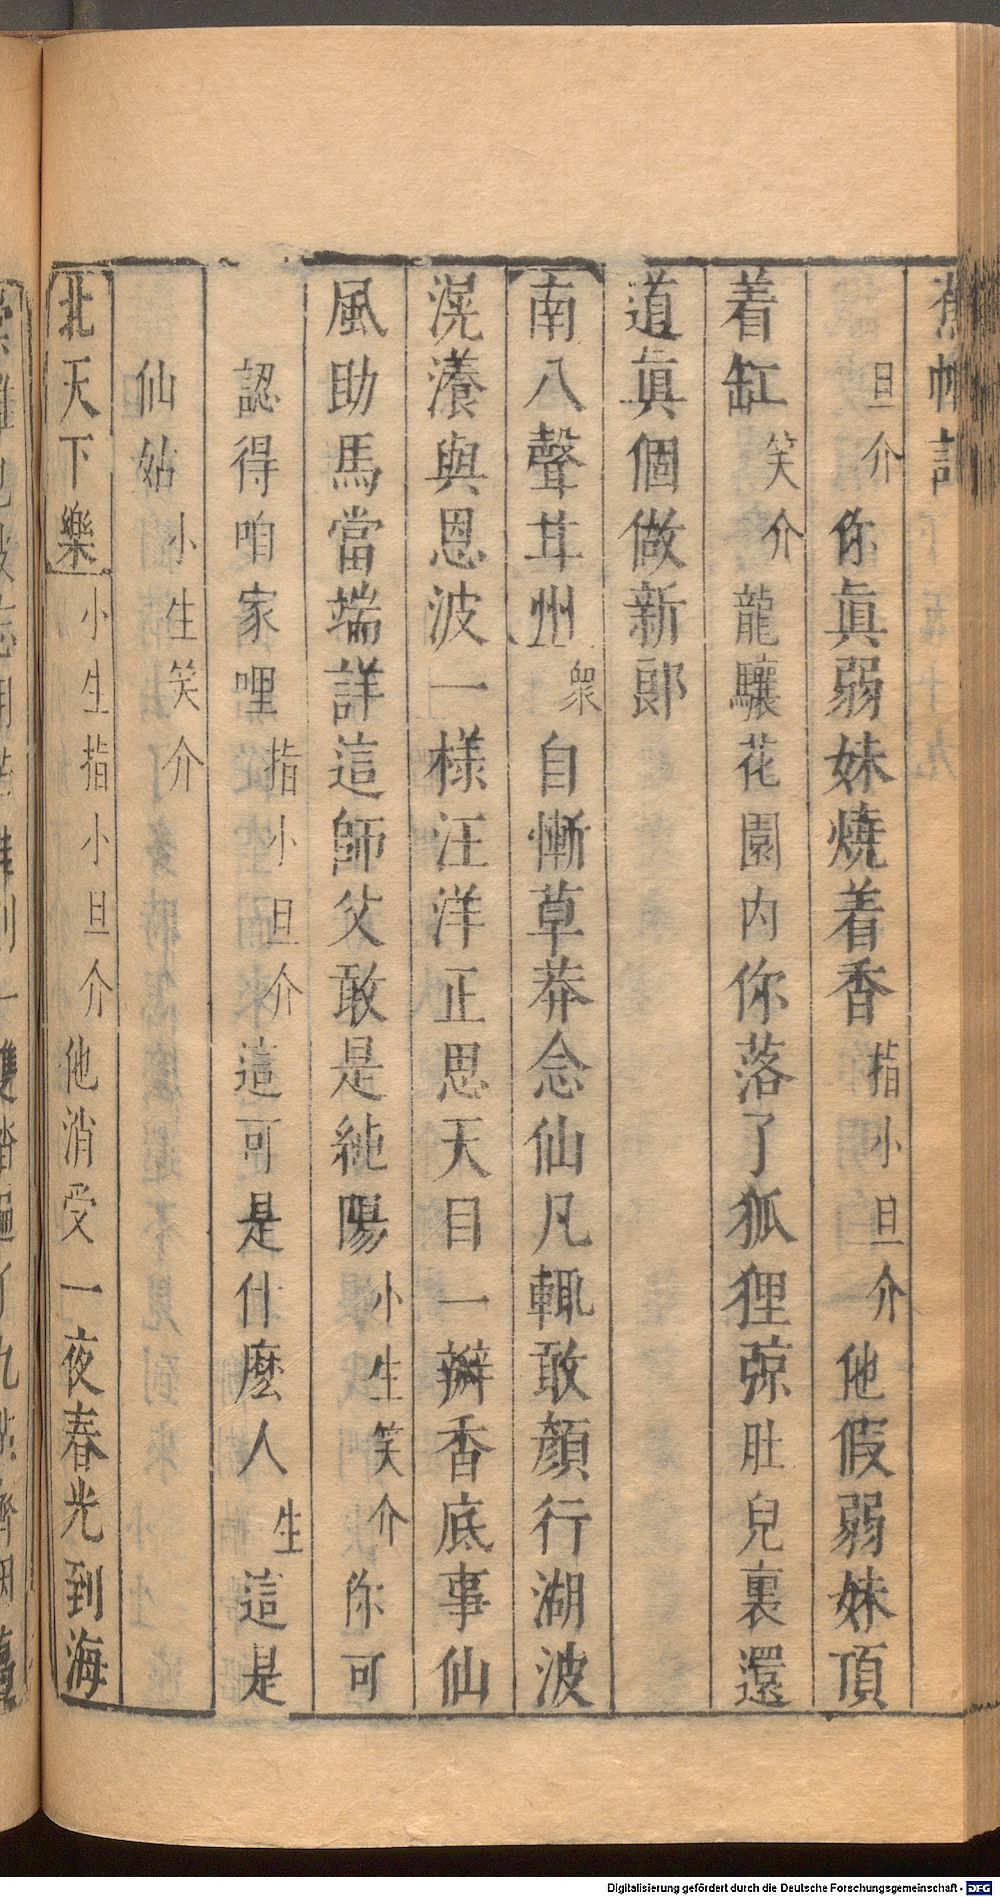 蕉帕記
旦介 你眞弱妹燒着香 指小旦介 他假弱妹頂
着缸 笑介 龍驤花園内你落了狐狸弶肚兒裏還
道眞個做新郞
南八聲甘州 衆 自慚草莽念仙凡輒敢顏行湖波
滉瀁與恩波一様汪洋正思天目一瓣香底事仙
風助馬當端詳這師父敢是純陽 小生笑介 你可
認得咱家哩 指小旦介 這可是什麽人 生 這是
仙姑 小生笑介
北天下樂 小生指小旦介 他消受一夜春光到海
Digitalisierung gefördert durch die Deutsche Forschungsgemeinschaft - DFG